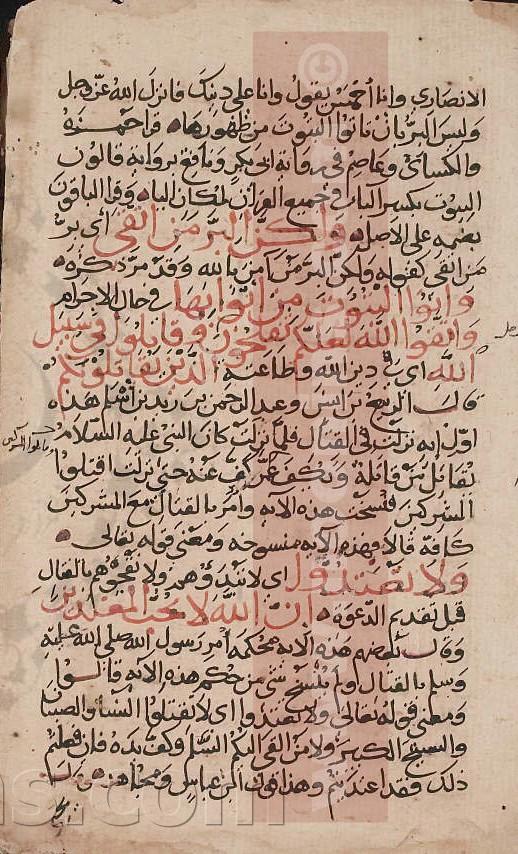 الانصاري وانا احمس يقول وانا على دينك فانزل الله عز وجل
وليس البر بان تاتوا البيوت من ظهورها قرا حمزة
والكسائي وعاصم في رواية ابي بكر ونافع برواية قالون
البيوت بكسر الباء في جميع القران لمكان الياء وقرا الباقون
بضمه على الاصل ولكن البر من اتقى اي بر
من اتقى كقوله ولكن البر من امن بالله وقد مر ذكره
واتوا البيوت من ابوابها في حال الاحرام
واتقوا الله لعلكم تفلحون وقاتلوا في سبيل
الله اي في دين الله وطاعته الذين يقاتلونكم
قال الربيع بن انس وعبد الرحمن بن زيد بن اسلم هذه
اول اية نزلت في القتال فلما نزلت كان النبي عليه السلام
يقاتل من قاتله ويكف عمن كف عنه حتى نزلت اقتلوا
المشركين فنسخت هذه الاية وامر بالقتال مع المشركين
كافة قالا فهذه الاية منسوخة ومعنى قوله تعالى
ولا تعتدوا اي لا تبدؤهم ولا تفجوهم بالقتال
قبل تقديم الدعوة ان الله لا يحب المعتدين
وقال بعضهم هذه الاية محكمة امر رسول الله صلى الله عليه
وسلم بالقتال ولم ينسخ شي من حكم هذه الاية قالوا
ومعنى قوله تعالى ولا تعتدوا اي لا تقتلوا النسا والصبيان
والشيخ الكبير ولا من القى اليكم السلم وكف يده فان فعلتم
ذلك فقد اعتديتم وهذا قول ابن عباس ومجاهد